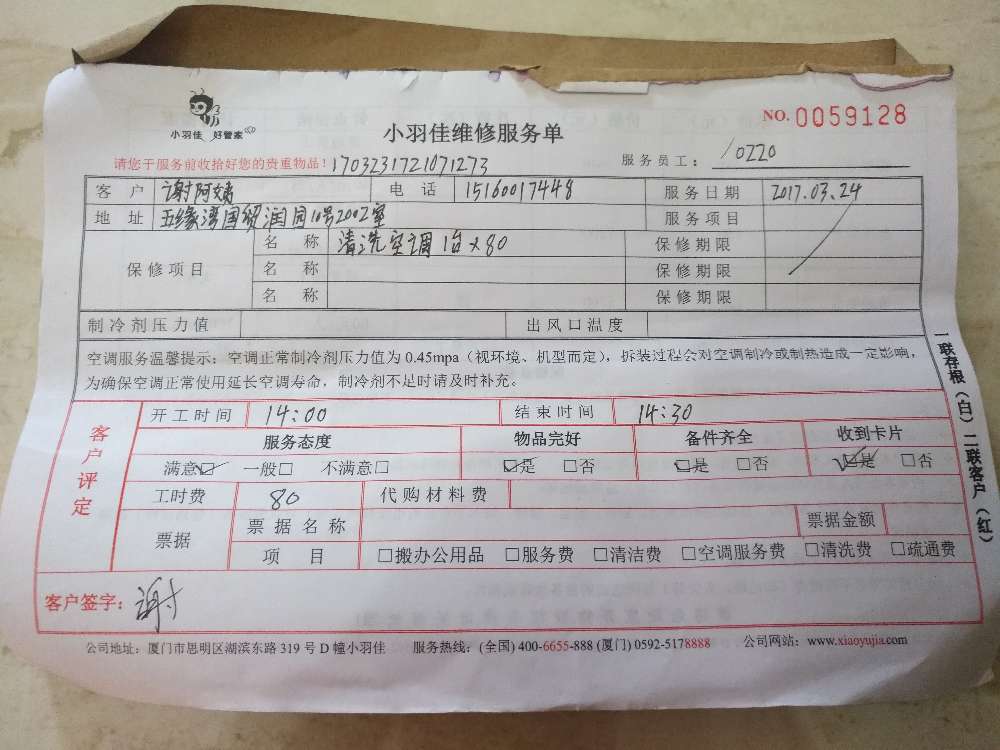 小羽佳 好管家
小羽佳维修服务单
NO. 0059128
请您于服务前收拾好您的贵重物品! 1703231721071273
服务员工: 10220
客户 谢阿嬌 电话 15160017448 服务日期 2017.03.24
地址 五缘湾国贸润园10号2002室 服务项目
保修项目 名称 清洗空调1台×80 保修期限
名称 保修期限
名称 保修期限
制冷剂压力值 出风口温度
空调服务温馨提示:空调正常制冷剂压力值为0.45mpa(视环境、机型而定),拆装过程会对空调制冷或制热造成一定影响,
为确保空调正常使用延长空调寿命,制冷剂不足时请及时补充。
一联存根(白)二联客户(红)
客户评定
开工时间 14:00 结束时间 14:30
服务态度 物品完好 备件齐全 收到卡片
满意☑ 一般□ 不满意□ ☑是 □否 ☑是 □否 ☑是 □否
工时费 80 代购材料费
票据 票据名称 票据金额
项目 □搬办公用品 □服务费 □清洁费 □空调服务费 □清洗费 □疏通费
客户签字: 谢
公司地址:厦门市思明区湖滨东路319号D幢小羽佳 服务热线:(全国)400-6655-888 (厦门)0592-5178888 公司网站:www.xiaoyujia.com